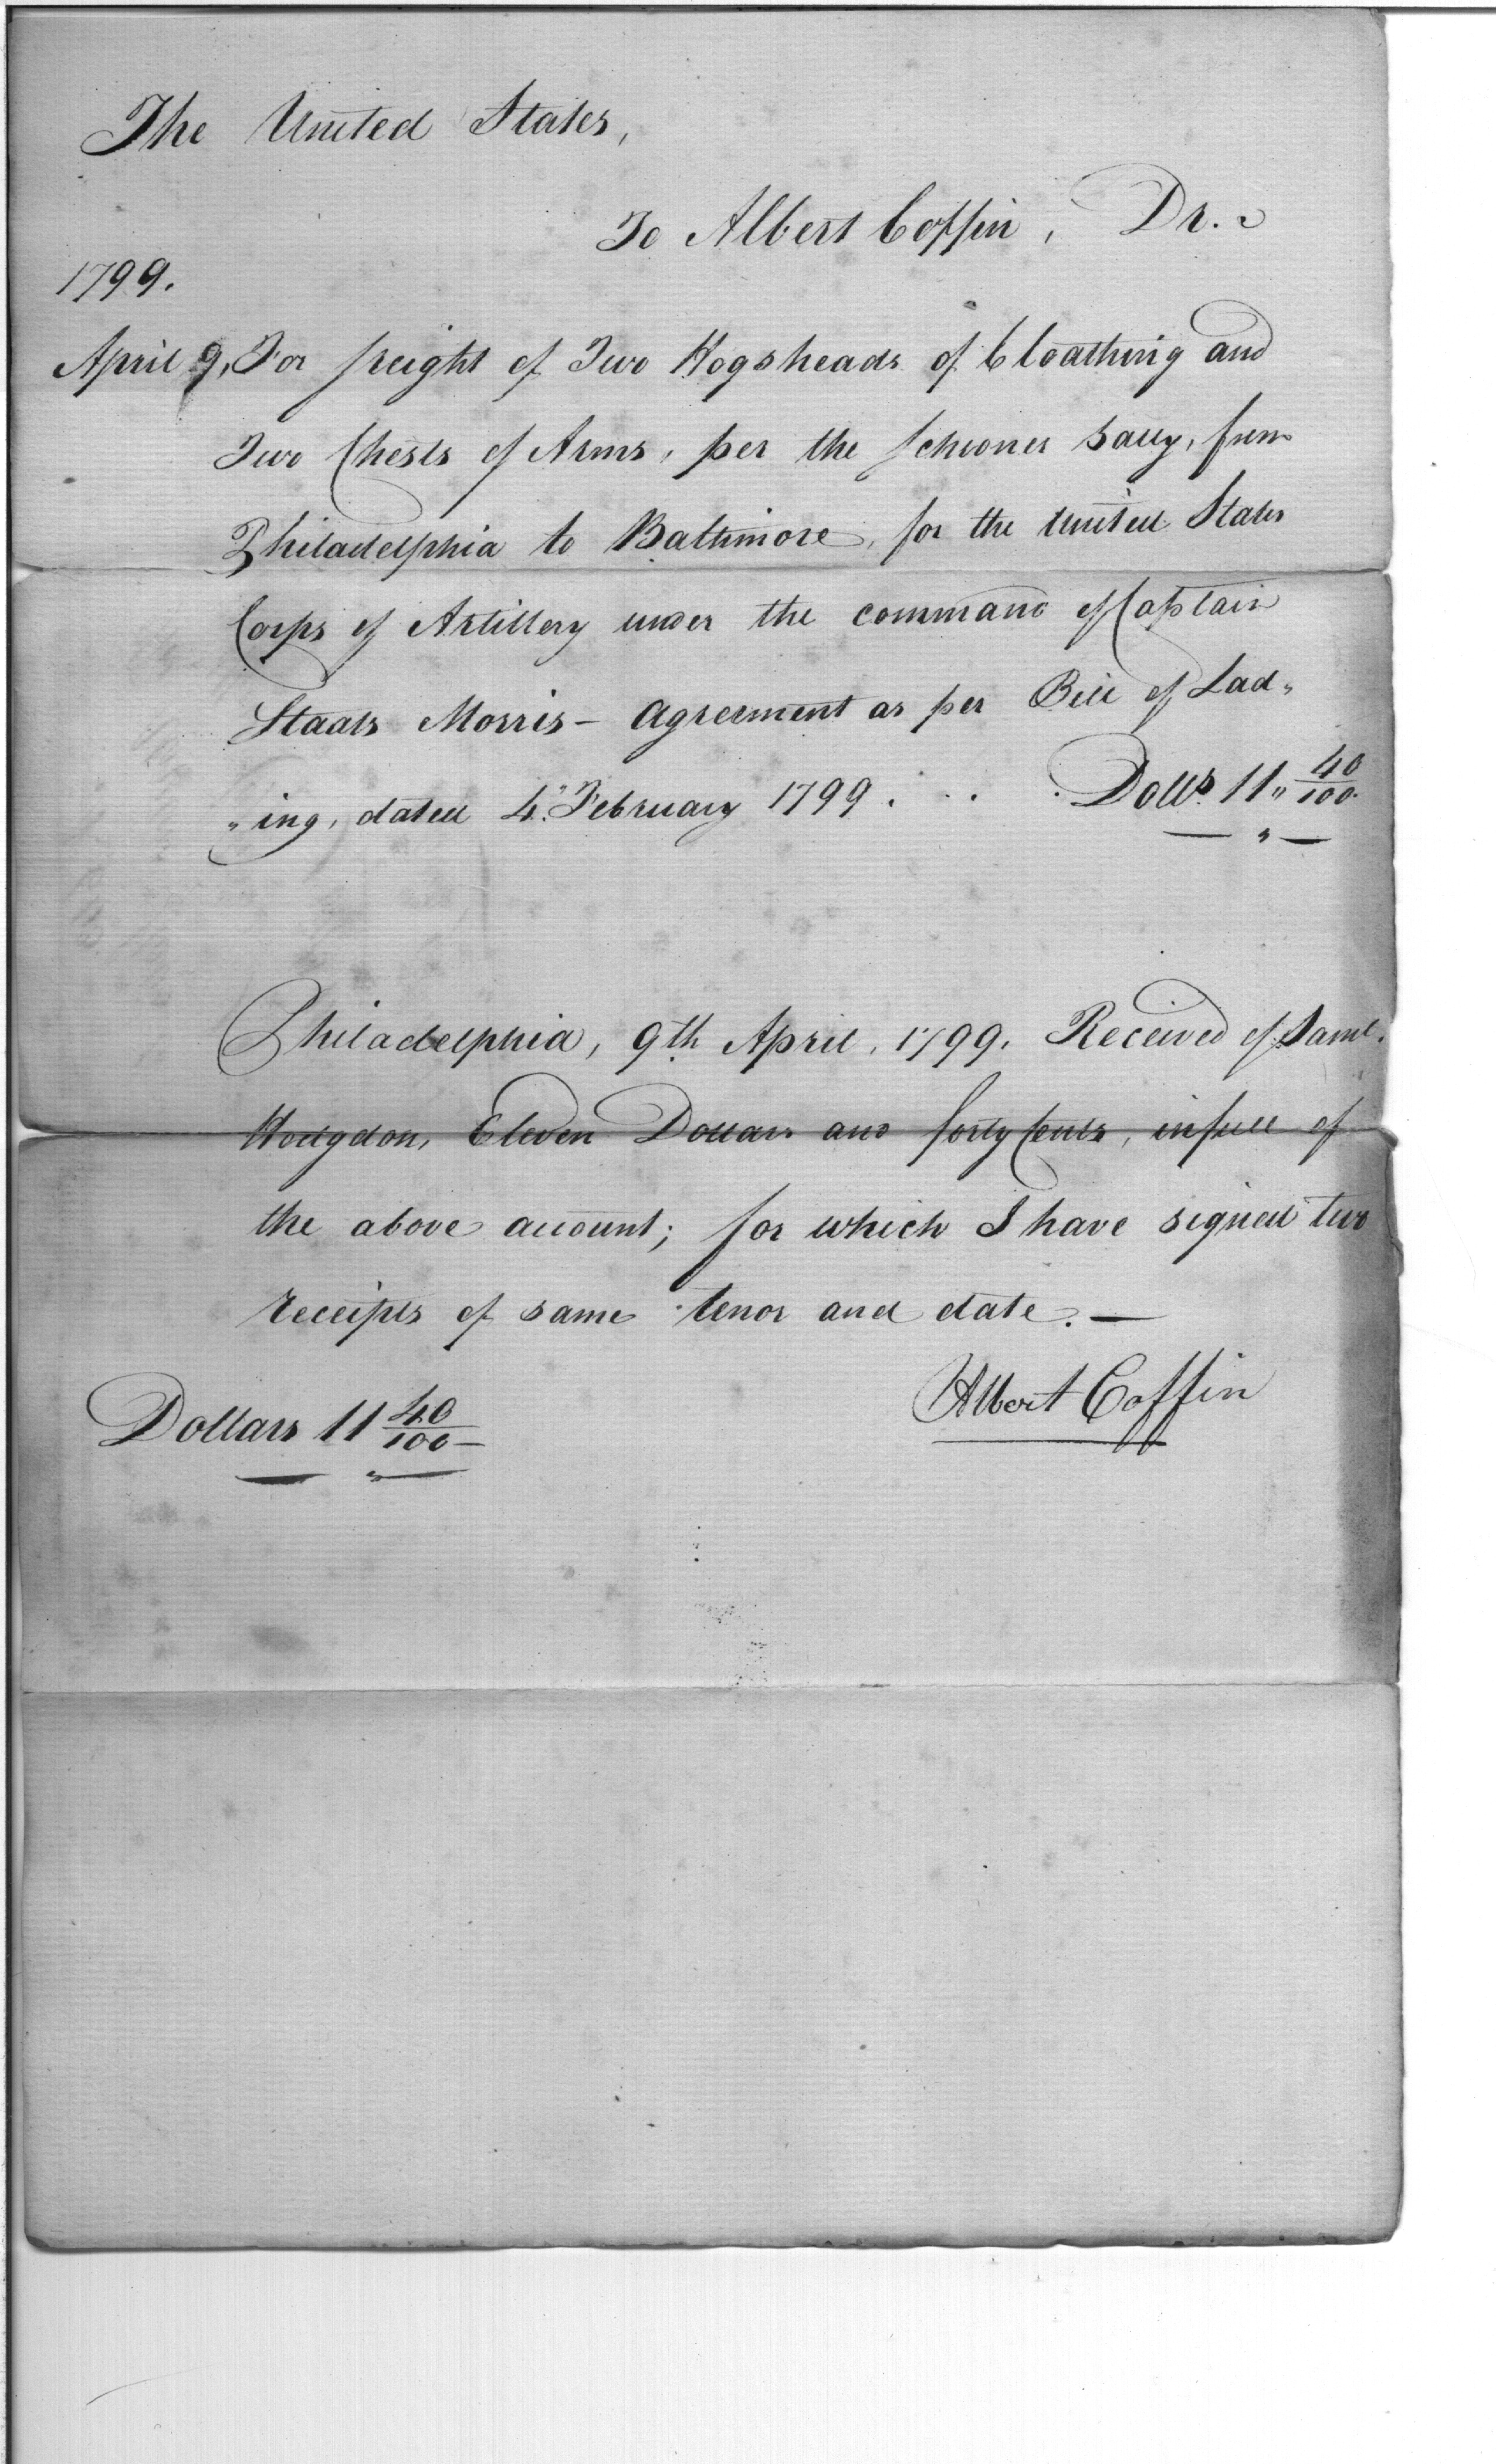 The United States,
To Albert Coffin, Dr.
1799.
April 9, For freight of Two Hogsheads of Cloathing and
Two Chests of Arms, per the schooner Sally, from
Philadelphia to Baltimore, for the United States
Corps of Artillery under the command of Captain
Staats Morris - Agreement as per Bill of Lad„
„ing, dated 4th February 1799 . . . Dolls. 11„ 40/100.
Philadelphia, 9th April, 1799. Received of Saml.
Hodgdon, Eleven Dollars and forty Cents, in full of
the above account; for which I have signed two
receipts of same tenor and date. —
Albert Coffin
Dollars 11 40/100